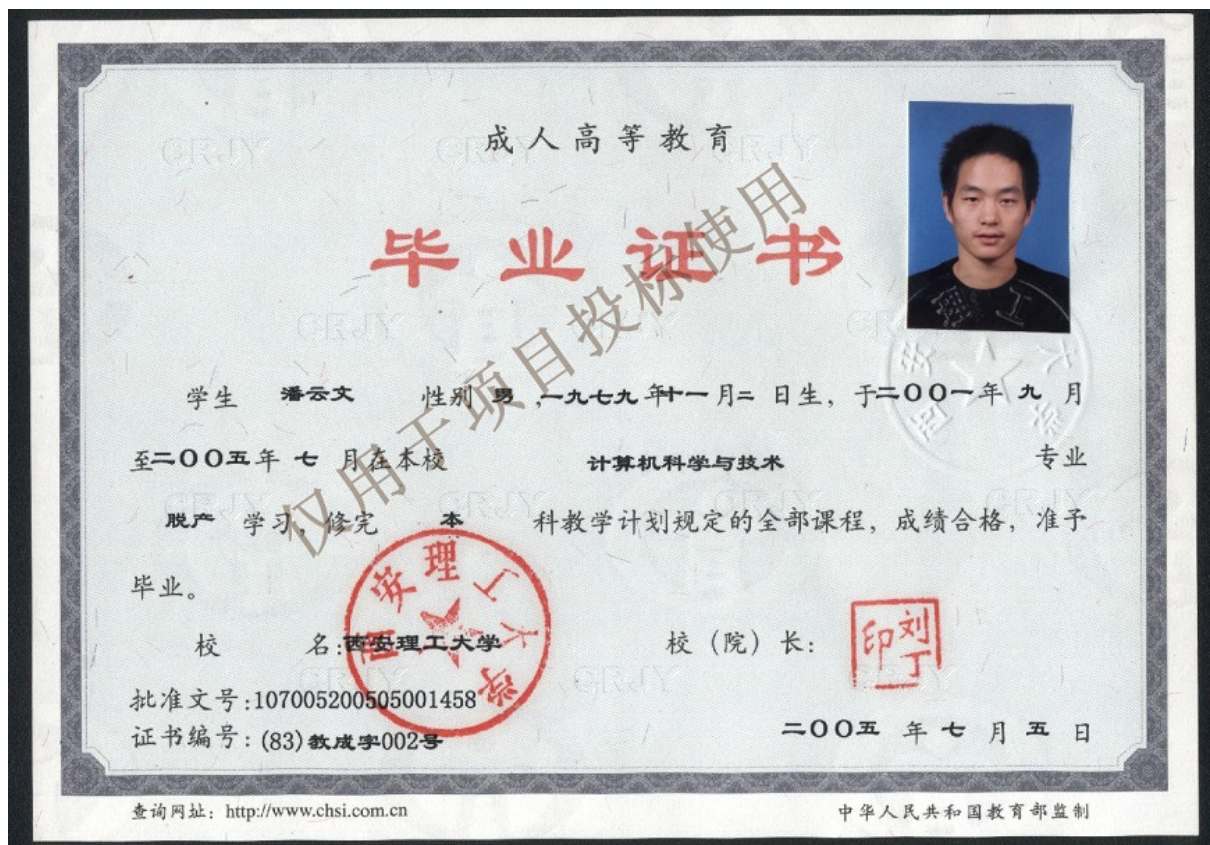 成人高等教育
毕业证书
学生 潘云文 性别 男 ,一九七九年十一月二日生, 于二〇〇一年九月
至二〇〇五年七月在本校 计算机科学与技术 专业
脱产 学习, 修完 本 科教学计划规定的全部课程, 成绩合格, 准予
毕业。
校 名:西安理工大学 校(院)长:
刘丁印
批准文号:107005200505001458
证书编号:(83)教成字002号
二〇〇五年七月五日
查询网址: http://www.chsi.com.cn 中华人民共和国教育部监制
仅用于项目投标使用
西安理工大学